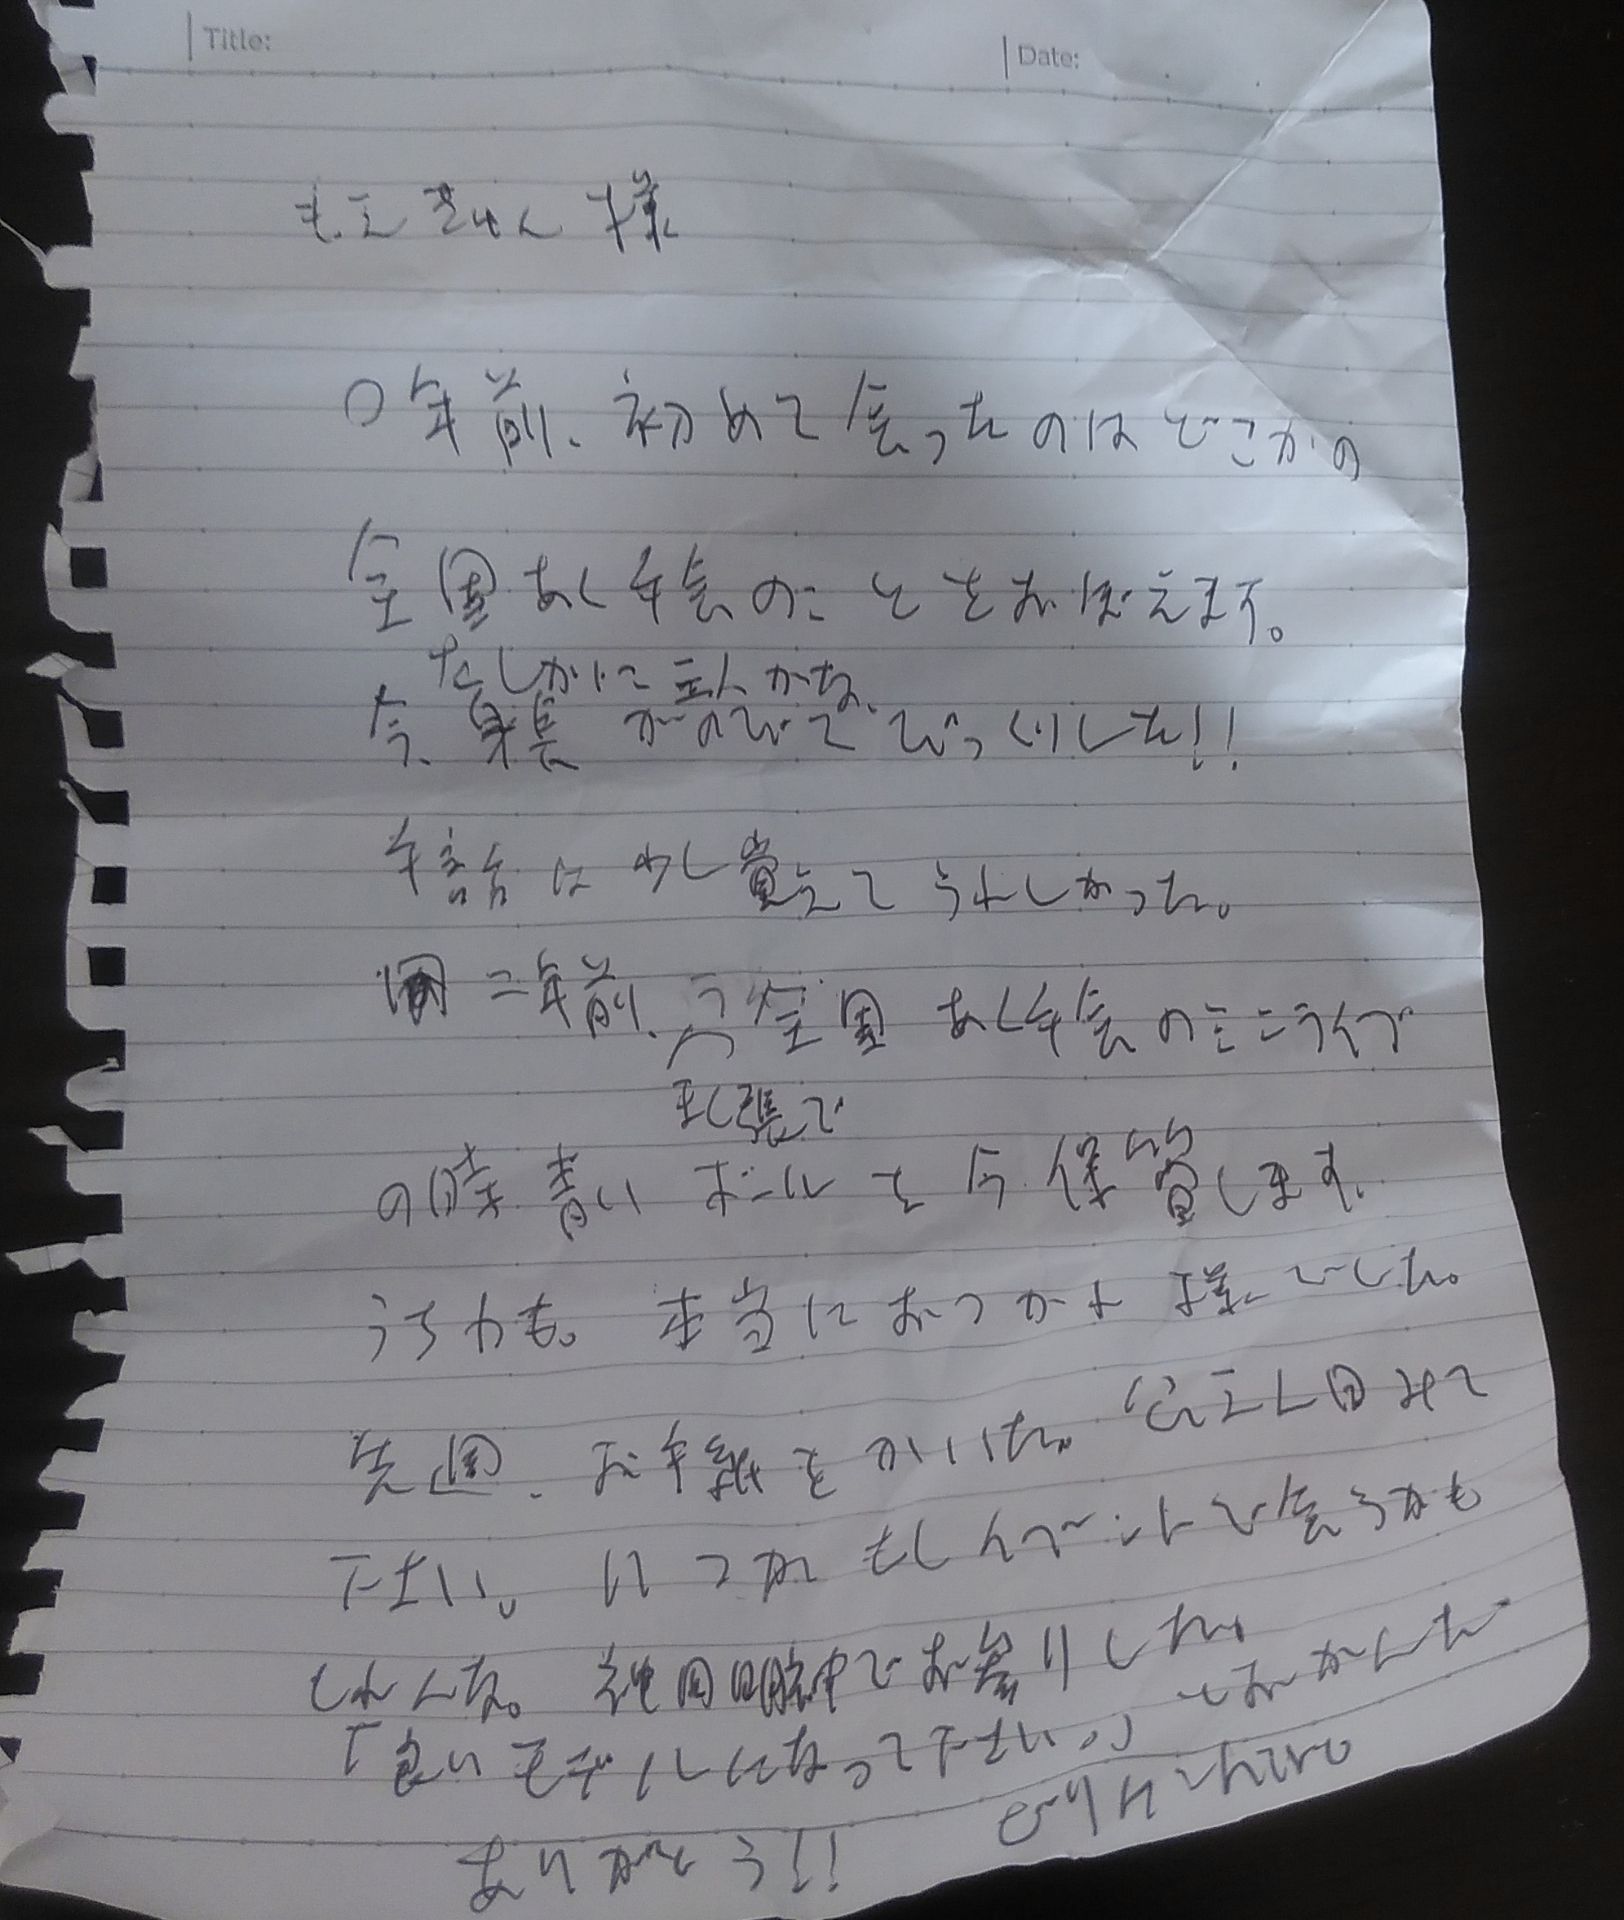 Title:
Date:
もえきゅん様
〇年前、初めて会ったのはどこかの
全国あく手会のことをおぼえます。
たしかに
今、身長がのびてびっくりした!!
手話は少し覚えてうれしかった。
二年前、全国あく手会のミニライブ
幕張で
の時青いボールを今保管します。
うちわも。本当におつかれ様でした。
先週、お手紙をかいた。 みて
下さい。いつかもしイベントで会うかも
しれんな。 でお参りした。
「良いモデルになって下さい。」とおがんだ
ありがとう!!